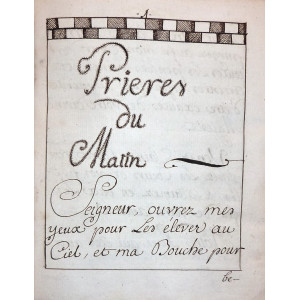 1.
Prieres
du
Matin
Seigneur, ouvrez mes
yeux pour Les élever au
Ciel, et ma Bouche pour
be-